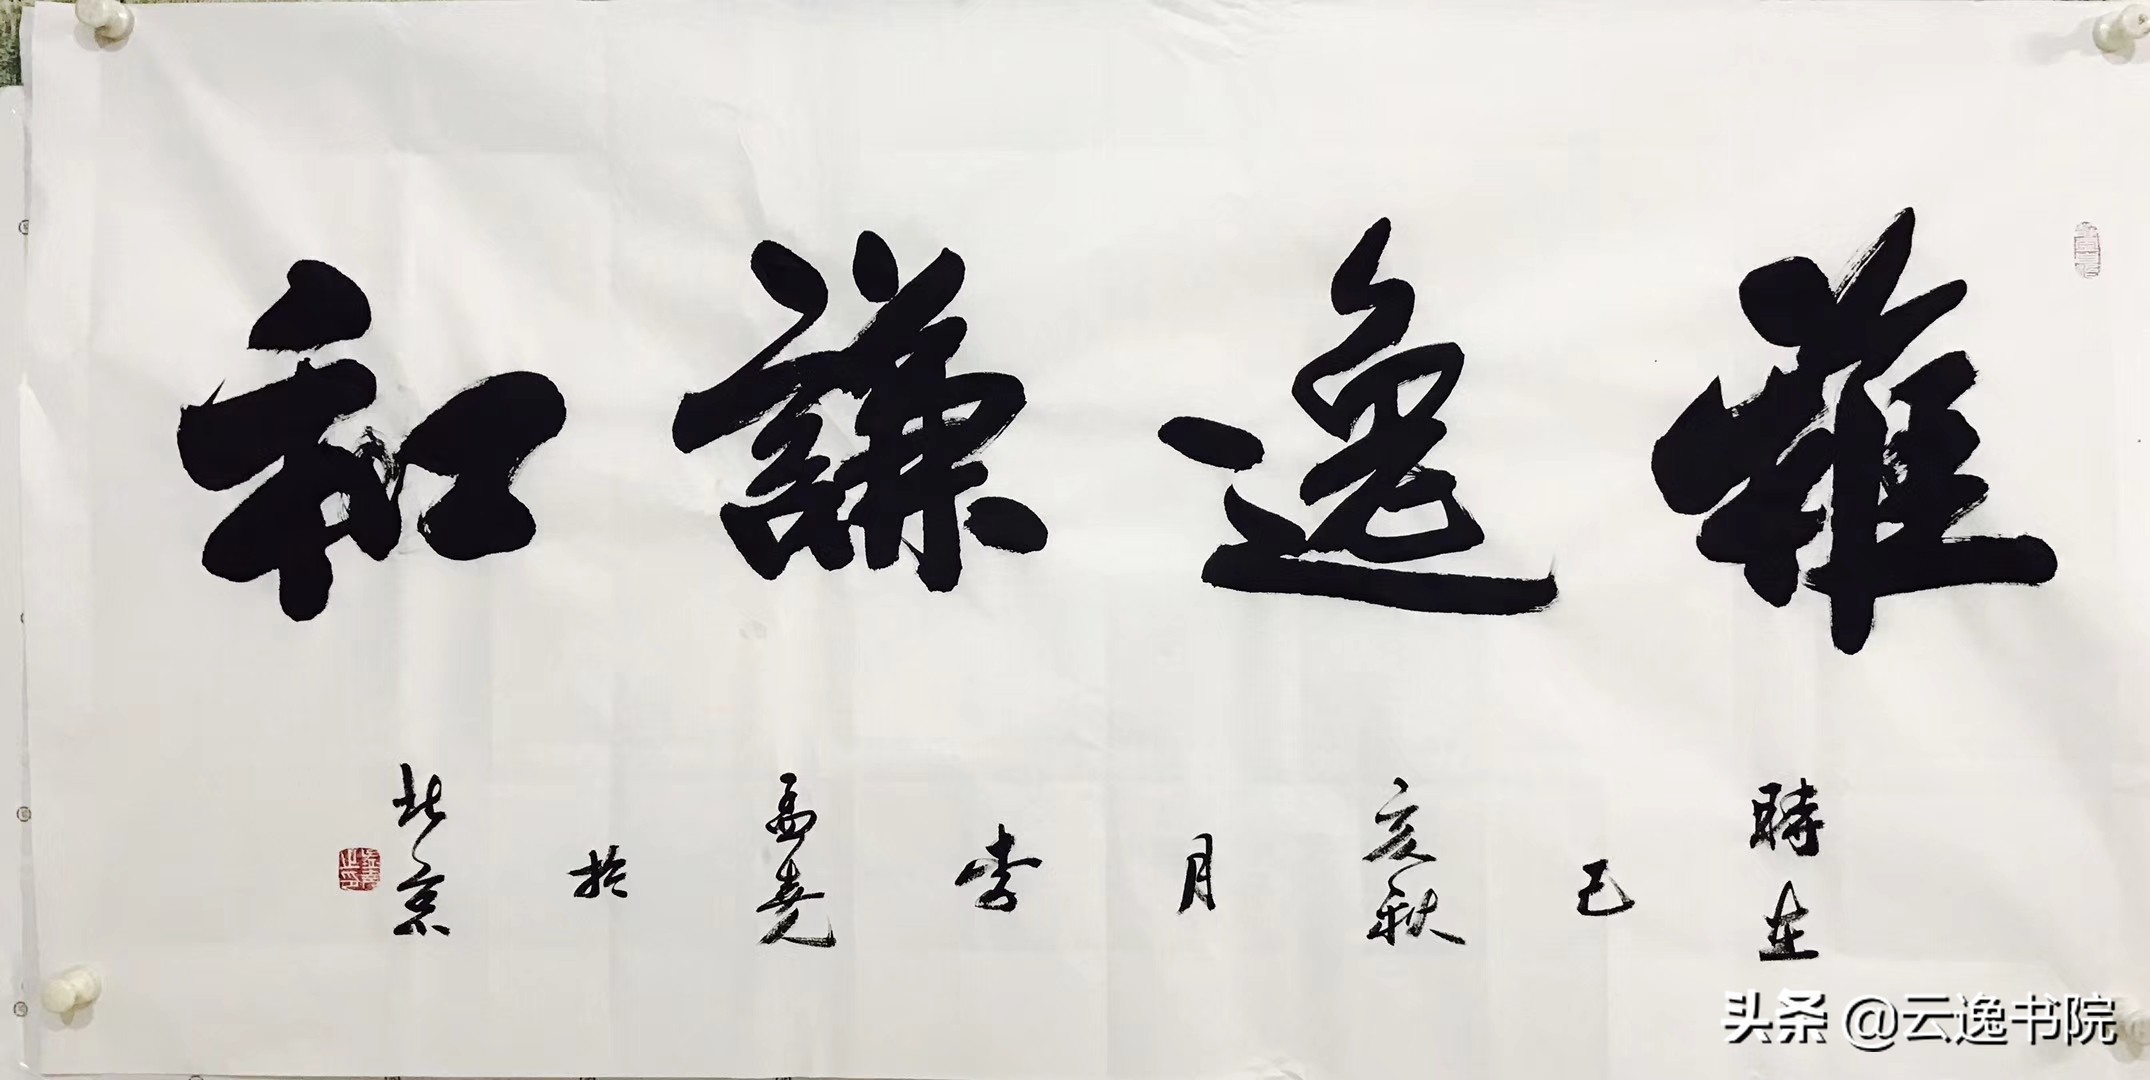 雅逸謙和
時在己亥秋月李孟堯於北京
头条 @云逸书院